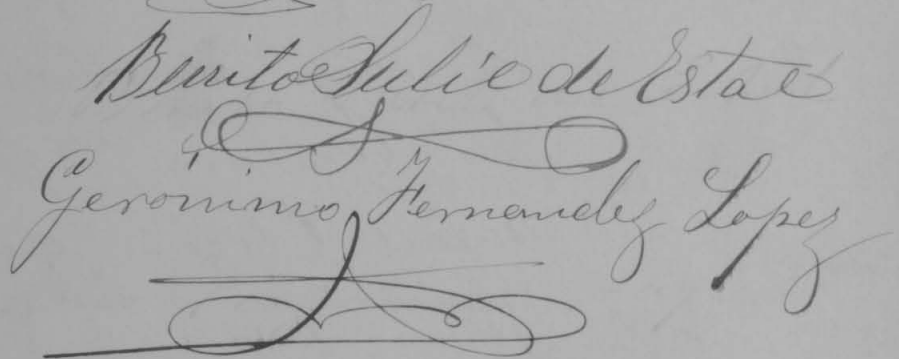 Benito Julie de Estal
Gerónimo Fernandez Lopez